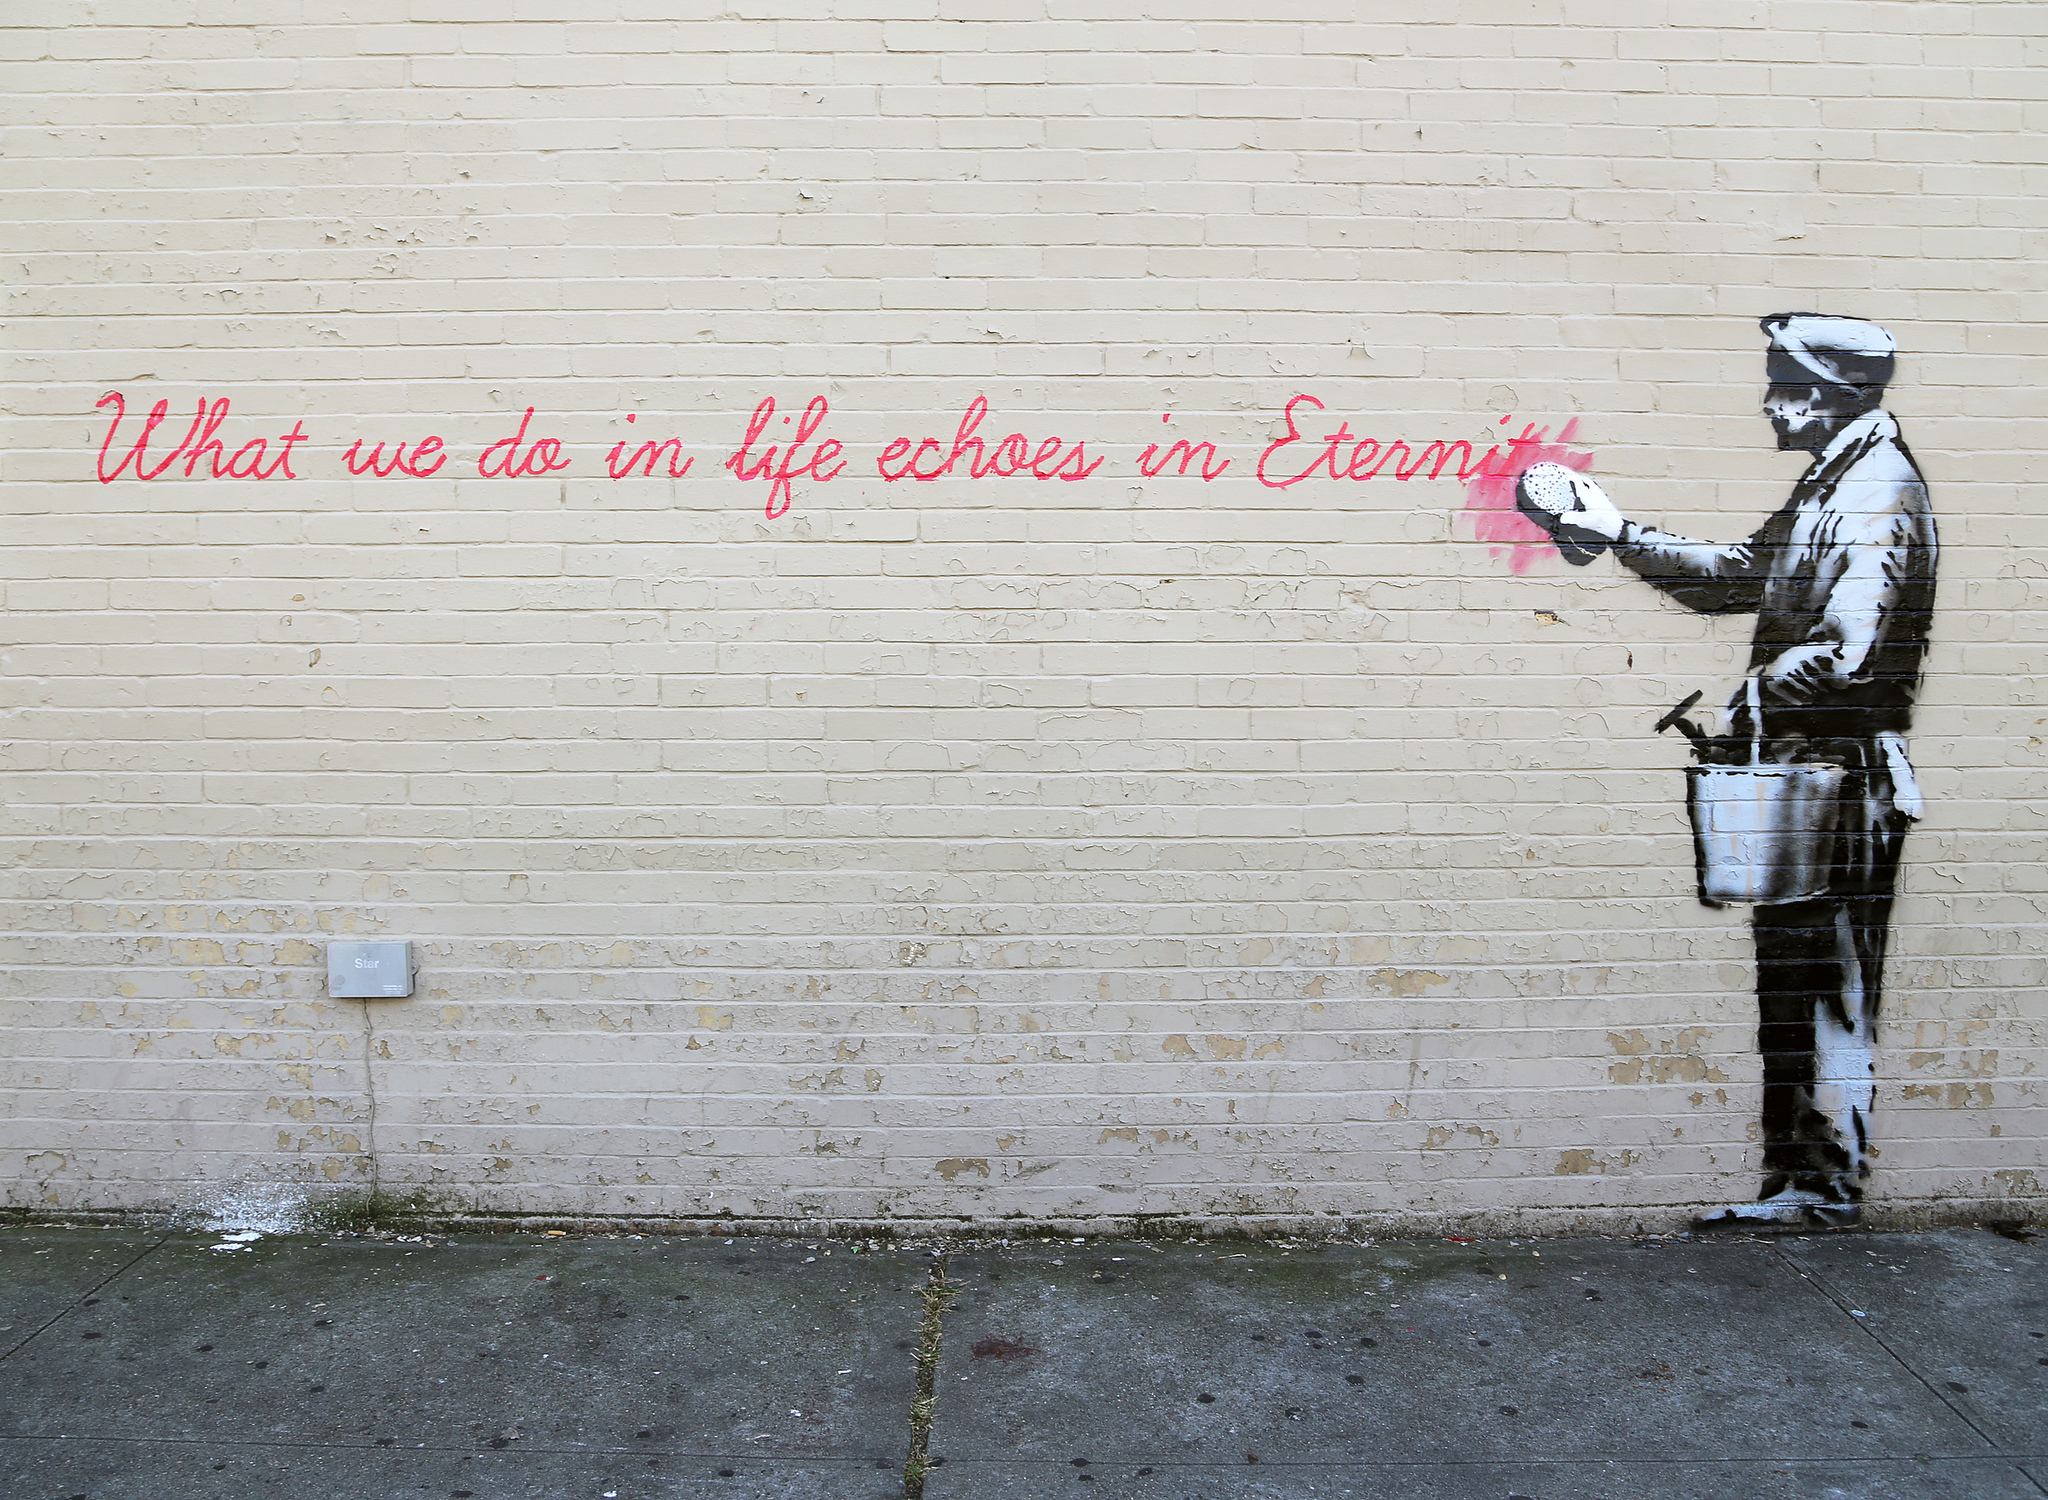 What we do in life echoes in Eternit
Star